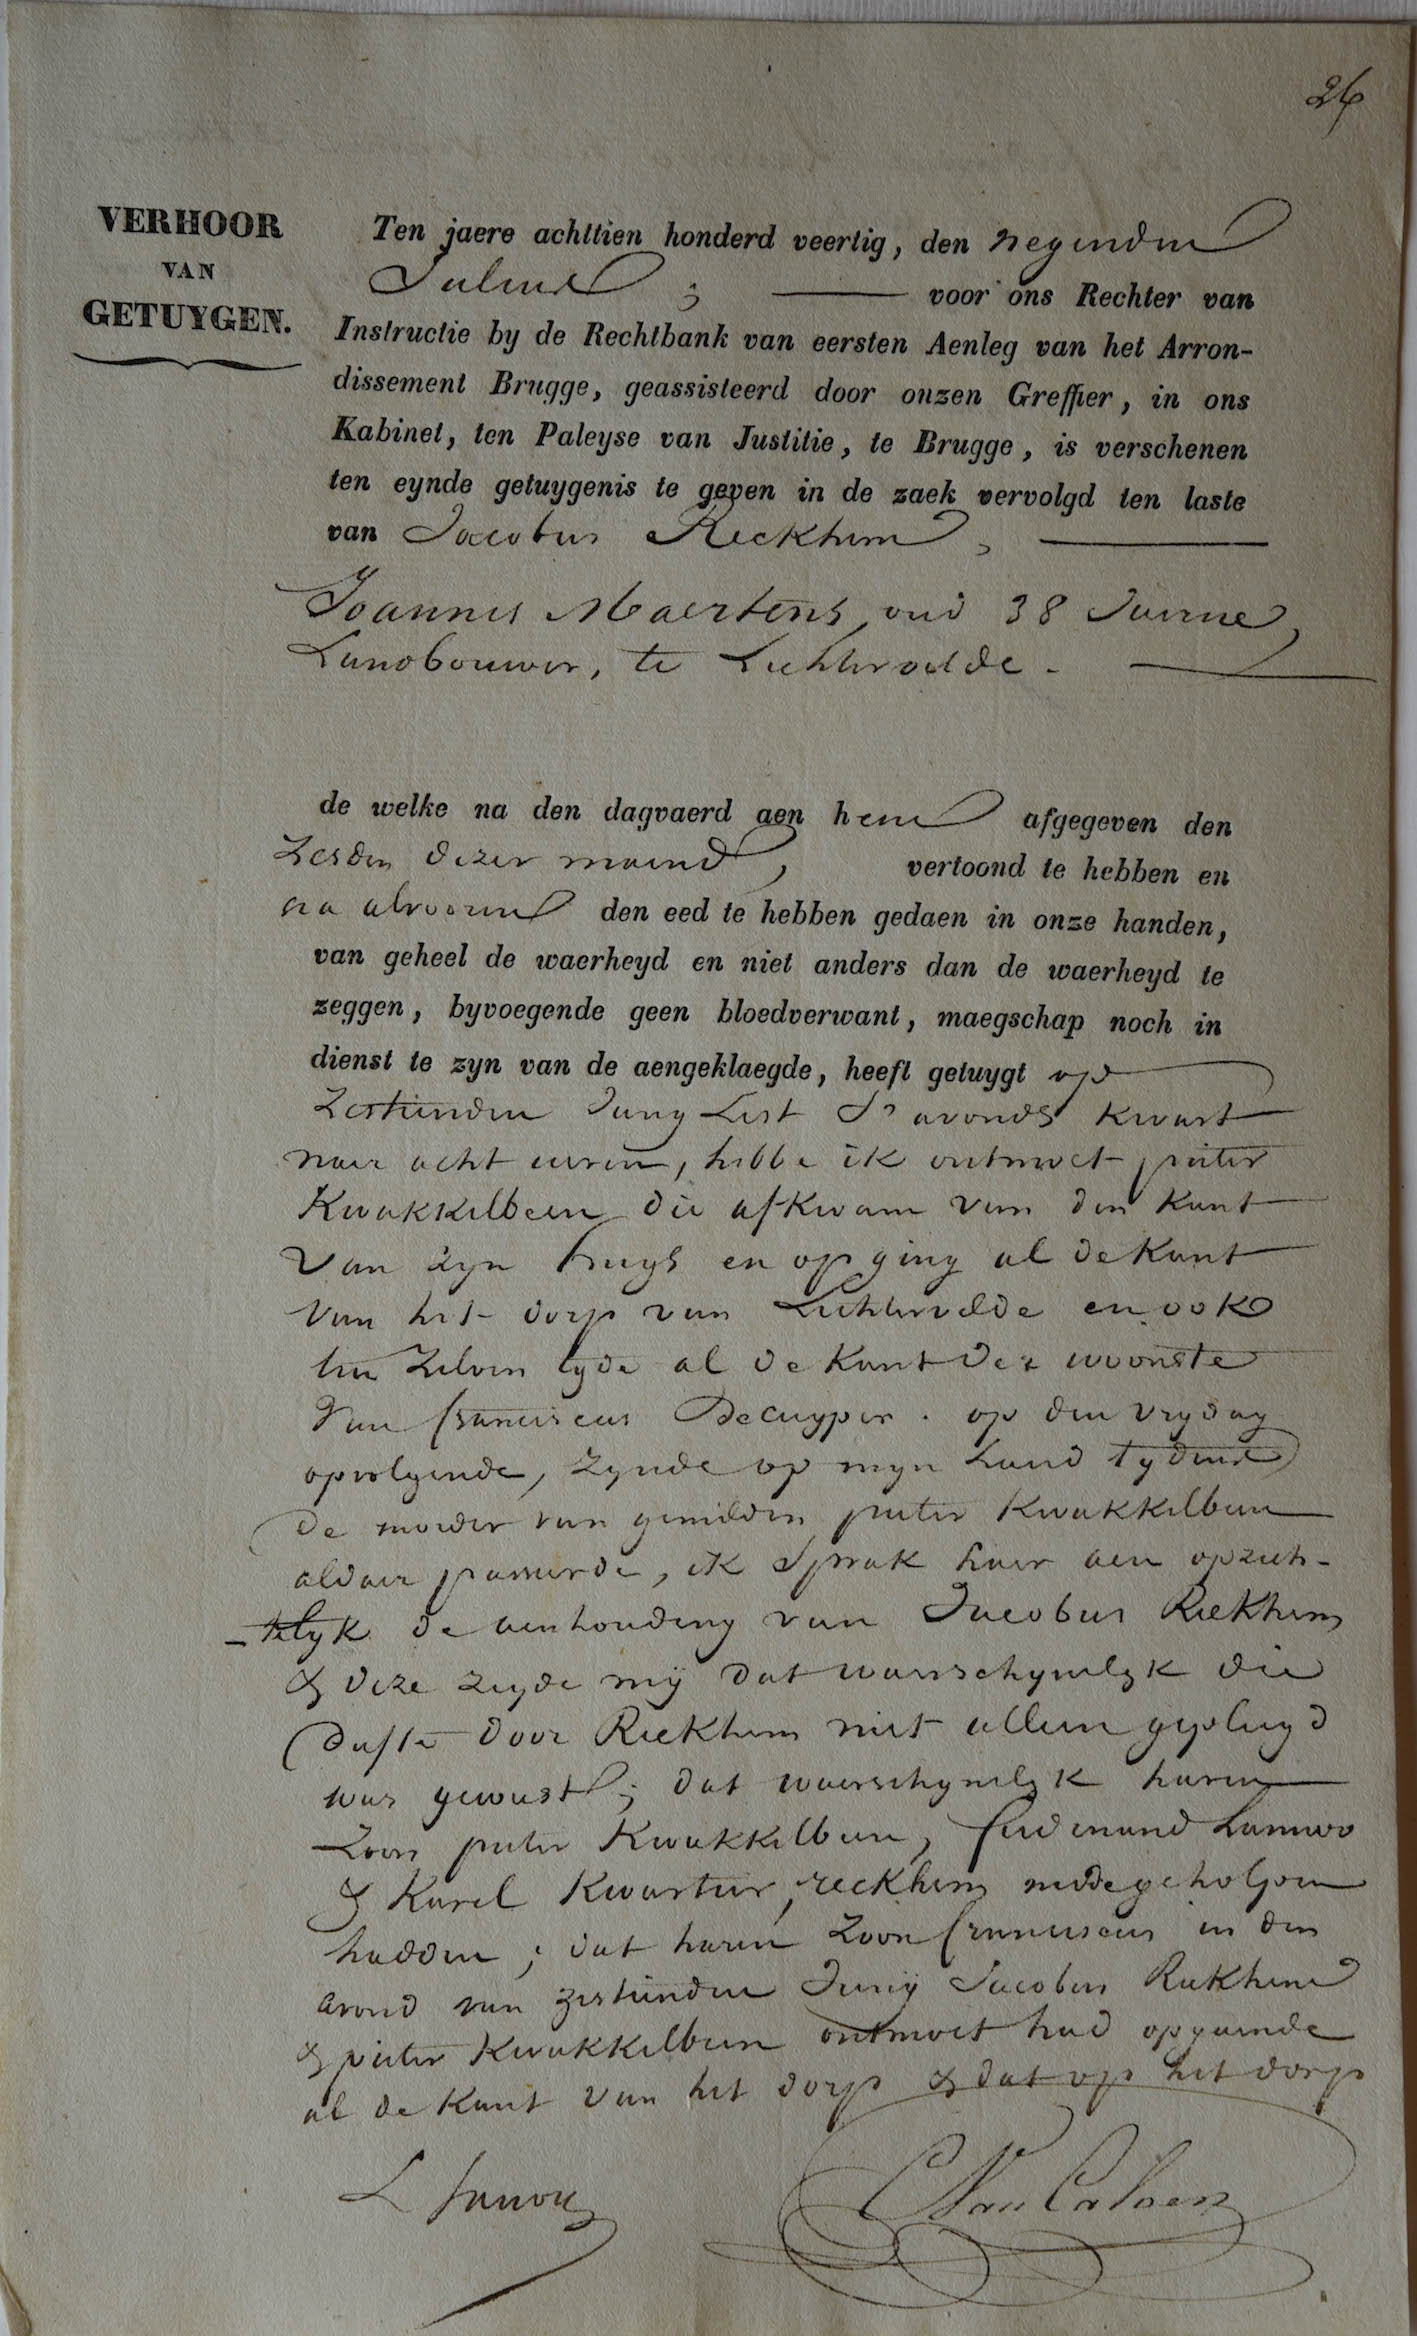 26
VERHOOR
VAN
GETUYGEN.
Ten jaere achttien honderd veertig, den negenden
Julius ; voor ons Rechter van
Instructie by de Rechtbank van eersten Aenleg van het Arron-
dissement Brugge, geassisteerd door onzen Greffier, in ons
Kabinet, ten Paleyse van Justitie, te Brugge, is verschenen
ten eynde getuygenis te geven in de zaek vervolgd ten laste
van Jacobus Reekhem,
Joannes Maertens, oud 38 Jaeren,
Landbouwer, te Lichtervelde.
de welke na den dagvaerd aen hem afgegeven den
Zesden dezer maend, vertoond te hebben en
na alvooren den eed te hebben gedaen in onze handen,
van geheel de waerheyd en niet anders dan de waerheyd te
zeggen, byvoegende geen bloedverwant, maegschap noch in
dienst te zyn van de aengeklaegde, heeft getuygt op
Zestienden Juny Lest S' avonds kwart
naer acht uren, hebbe ik ontmoet pieter
Kwakkelbeen die afkwam van den kant
van zyn huys en op ging al de kant
van het dorp van Lichtervelde en ook
ten zelven tyde al de kant der woonste
van franciscus Decuyper. op den vrydag
opvolgende, zynde op myn Land tydens
de moeder van gemelden pieter Kwakkelbeen
aldaer passeerde, ik sprak haer aen opzich-
-telyk de aenhouding van Jacobus Reekhem
& deze zeyde mij dat waerschynelyk die
dufte door Reekhem niet alleen gepleegd
was geweest; dat waerschynelyk haren
Zoon pieter Kwakkelbeen, ferdinand Lannoo
& Karel Kwartier, reekhem medegeholpen
hadden; dat haren Zoon franciscus in den
avond van zestienden Junij Jacobus Reekhem
& pieter Kwakkelbeen ontmoet had opgaende
al de kant van het dorp & dat op het dorp
C Van Caloen